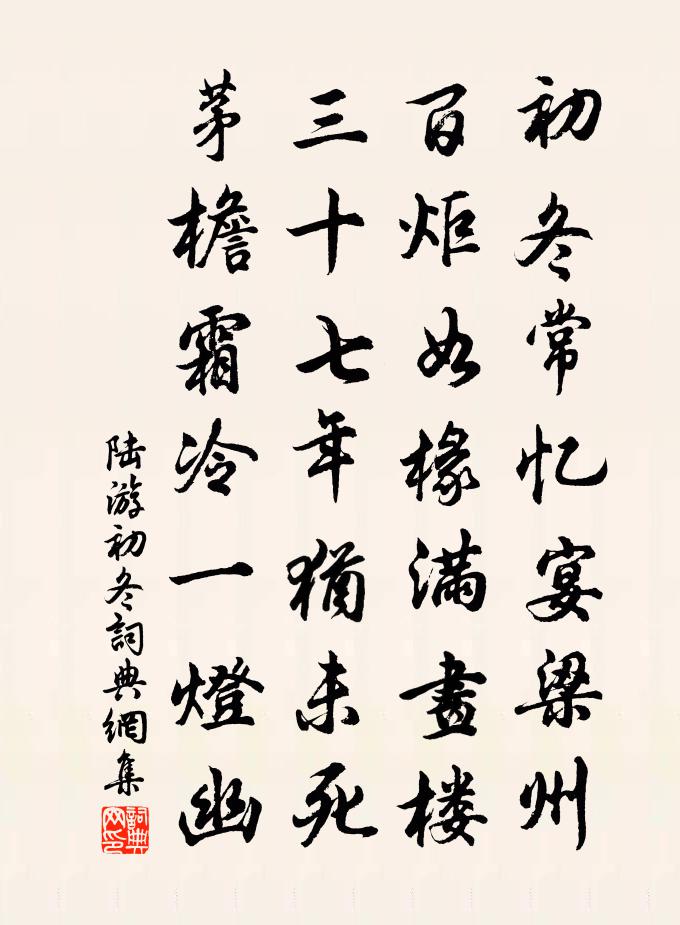 初冬常忆宴梁州
百炬如椽满畫楼
三十七年猶未死
茅檐霜冷一燈幽
陆游初冬詞典網集
詞典网印